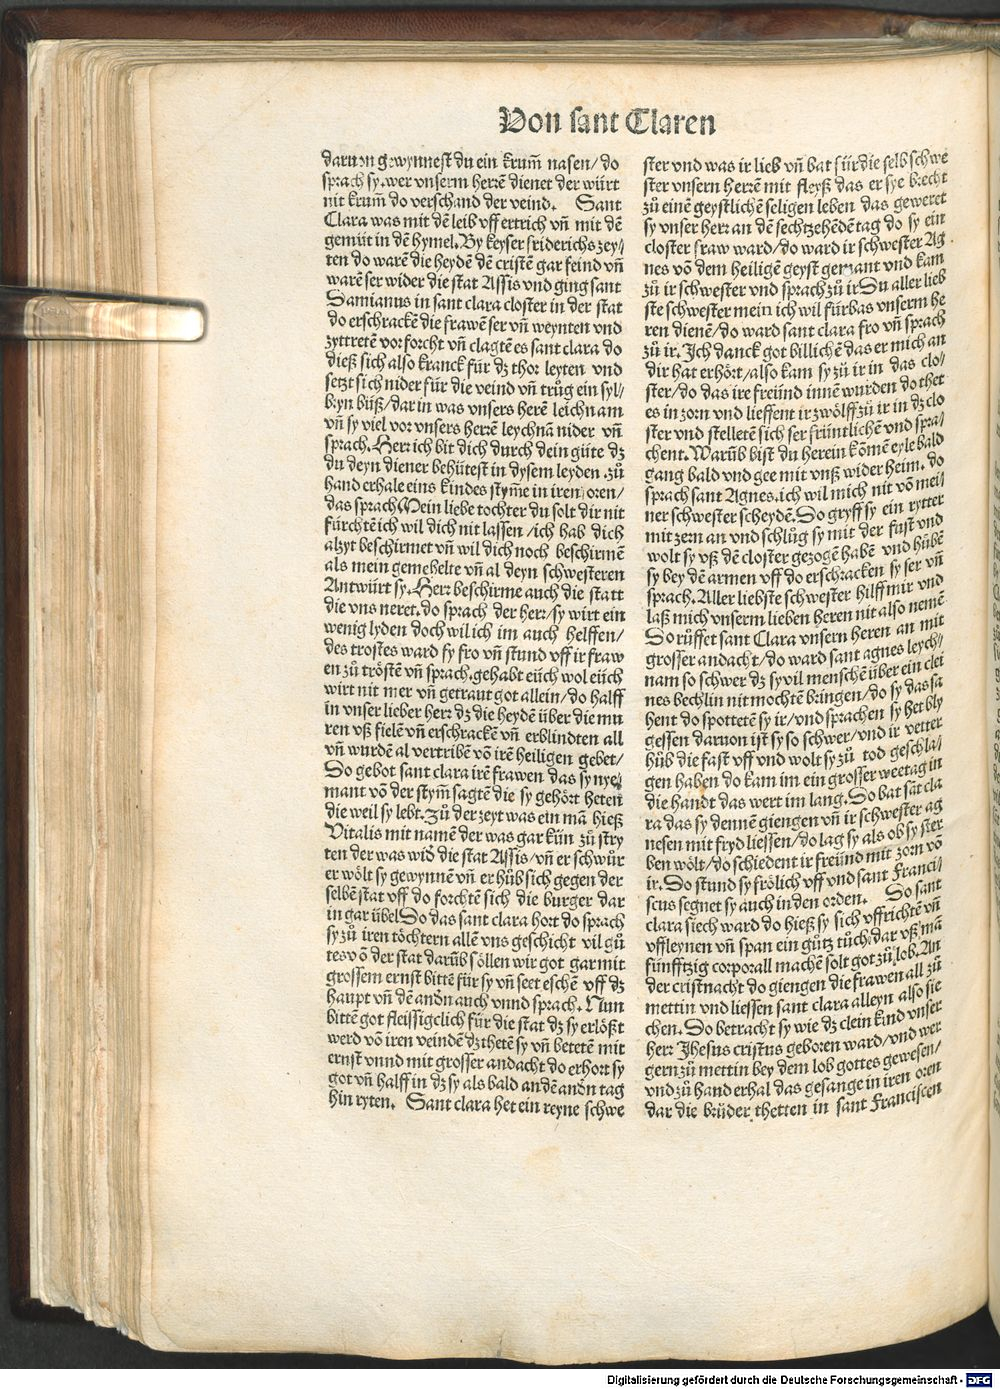 Von sant Claren
darum gewynnest du ein krum̃ nasen/do
sprach sy.wer vnserm herrē dienet der würt
nit krum̃ do verschand der veind. Sant
Clara was mit dē leib vff ertrich vñ mit dē
gemüt in dē hymel.By keyser friderichs zey/
ten do warē die heydē dē cristē gar feind vñ
warē ser wider die stat Assis vnd ging sant
Damianus in sant clara closter in der stat
do erschrackē die frawē ser vñ weynten vnd
zyttretē vor forcht vñ clagtē es sant clara do
dieß sich also kranck für dz thor leyten vnd
setzt sich nider für die veind vñ trůg ein syl/
bryn büß/dar in was vnsers herē leichnam
vñ sy viel vor vnsers herrē leychnā nider vñ
sprach.Herr ich bit dich durch dein güte dz
du deyn diener behütest in dysem leyden.zů
hand erhale eins kindes stym̃e in iren oren/
das sprach Mein liebe tochter du solt dir nit
fürchtē ich wil dich nit lassen/ich hab dich
alzyt beschirmet vñ wil dich noch beschirmē
als mein gemehelte vñ al deyn schwesteren
Antwürt sy.Herr beschirme auch die statt
die vns neret.do sprach der herr/sy wirt ein
wenig lyden doch wil ich im auch helffen/
des trostes ward sy fro vñ stund vff ir fraw
en zů tröstē vñ sprach.gehabt eüch wol eüch
wirt nit mer vñ getraut got allein/do halff
in vnser lieber herr dz die heydē über die mu
ren vß fielē vñ erschrackē vñ erblindten all
vñ wurdē al vertribē vō irē heiligen gebet/
Do gebot sant clara irē frawen das sy nye/
mant vō der stym̃ sagtē die sy gehört heten
die weil sy lebt.Zů der zeyt was ein mā hieß
Vitalis mit namē der was gar kün zů stry
ten der was wid̄ die stat Assis/vñ er schwůr
er wölt sy gewynnē vñ er hůb sich gegen der
selbē stat vff do forchtē sich die burger dar
in gar übel Do das sant clara hort do sprach
sy zů iren töchtern allē vns geschicht vil gů
tes vō der stat darūb söllen wir got gar mit
grossem ernst bittē für sy vñ seet eschē vff dz
haupt vñ dē and̄n auch vnnd sprach. Nun
bittē got fleissigclich für die stat dz sy erlößt
werd vō iren veindē dz thetē sy vñ betetē mit
ernst vnnd mit grosser andacht do erhort sy
got vñ halff in dz sy als bald an dē and̄n tag
hin ryten. Sant clara het ein reyne schwe
ster vnd was ir lieb vñ bat für die selb schwe
ster vnsern herrē mit fleyß das er sye brecht
zů einē geystlichē seligen leben das geweret
sy vnser herr an dē sechtzehēdē tag do sy ein
closter fraw ward/do ward ir schwester Ag
nes vō dem heiligē geyst gemant vnd kam
zů ir schwester vnd sprach zů ir Du aller lieb
ste schwester mein ich wil fürbas vnserm he
ren dienē/do ward sant clara fro vñ sprach
zů ir.Ich danck got billichē das er mich an
dir hat erhört/also kam sy zů ir in das clo/
ster/do das ire freünd innē wurden do thet
es in zorn vnd lieffent ir zwölff zů ir in dz clo
ster vnd stelletē sich ser früntlichē vnd spra/
chent.Warūb bist du herein kōmē eyle bald
gang bald vnd gee mit vnß wider heim. do
sprach sant Agnes.ich wil mich nit vō mei/
ner schwester scheydē.Do gryff sy ein rytter
mit zern an vnd schlůg sy mit der fust vnd
wolt sy vß dē closter gezogē habē vnd hůbē
sy bey dē armen vff do erschracken sy ser vñ
sprach.Aller liebste schwester hilff mir vnd
laß mich vnserm lieben heren nit also nemē
Do rüffet sant Clara vnsern heren an mit
grosser andacht/do ward sant agnes leych/
nam so schwer dz sy vil menschē über ein clei
nes bechlin nit mochtē bringen/do sy das sa
hent do spottetē sy ir/vnd sprachen sy het bly
gessen daruon ist sy so schwer/vnd ir vetter
hůb die fast vff vnd wolt sy zů tod geschla/
gen haben do kam im ein grosser weetag in
die handt das wert im lang.Do bat sāt cla
ra das sy dennē giengen vñ ir schwester ag
nesen mit fryd liessen/do lag sy als ob sy ster
ben wölt/do schiedent ir freünd mit zorn vō
ir.Do stund sy frölich vff vnd sant Franci/
scus segnet sy auch in den orden. Do sant
clara siech ward do hieß sy sich vffrichtē vñ
vffleynen vñ span ein gůtz tůch dar vß mā
fünfftzig corporall machē solt got zů lob.An
der cristnacht do giengen die frawen all zů
mettin vnd liessen sant clara alleyn also sie
chen. Do betracht sy wie dz clein kind vnser
herr Jhesus cristus geboren ward/vnd wer
gern zů mettin bey dem lob gottes gewesen/
vnd zů hand erhal das gesange in iren oren
dar die brüder thetten in sant Franciscen
Digitalisierung gefördert durch die Deutsche Forschungsgemeinschaft - DFG